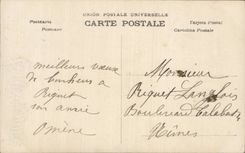 UNION POSTALE UNIVERSELLE
Postkarte CARTE POSTALE Tarjeta Postal
Postcard Cartolina Postale
meilleurs vœux
de bonheur à
Riquet
son amie
Monsieur
Riquet Langlois
Boulevard
Nîmes